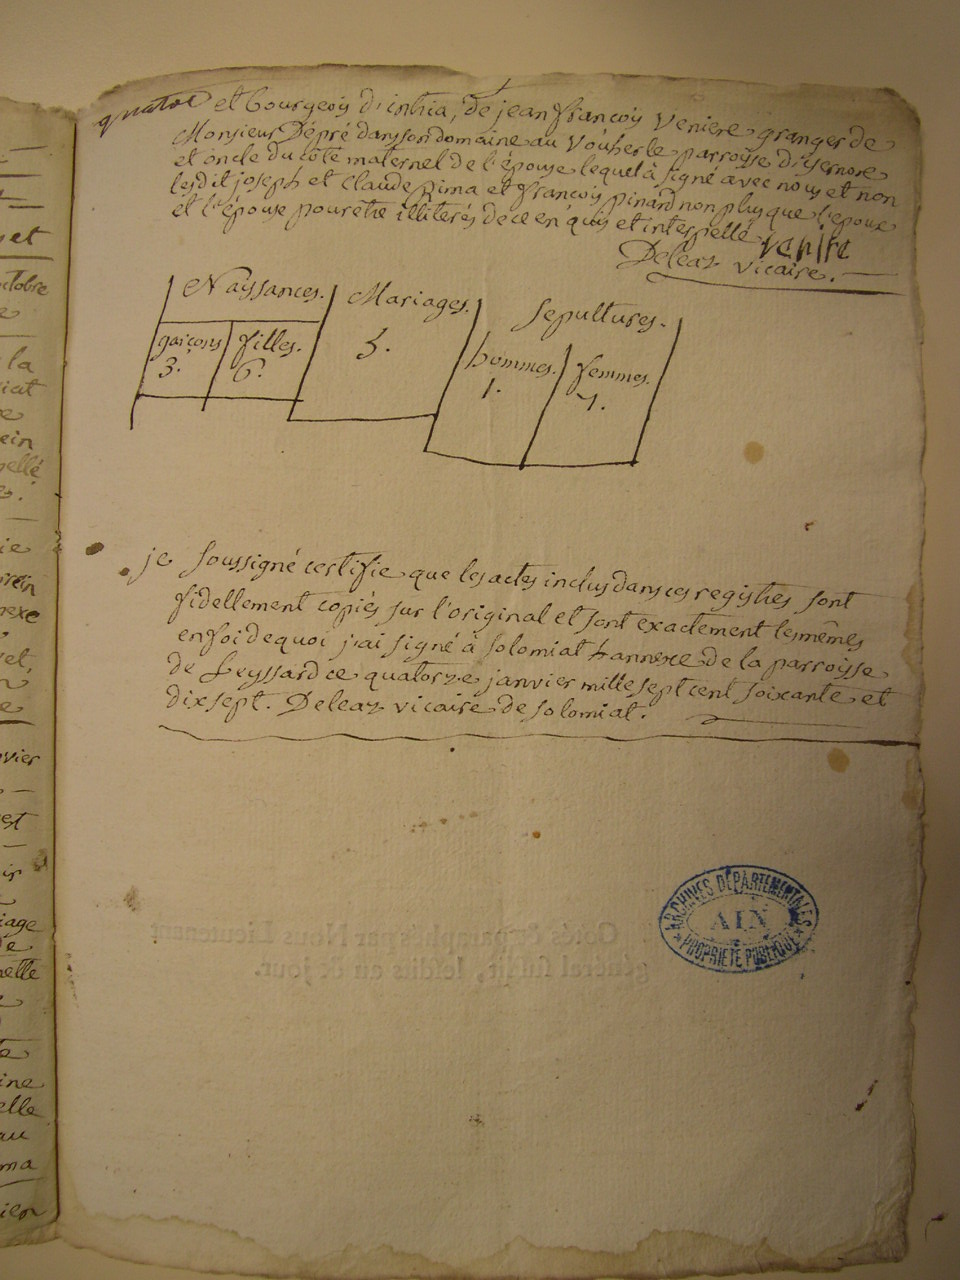 quatre
et Bourgeois d'intria, de jean françois veniere granger de
Monsieur Dépré dans son domaine au Voüherle parroisse d'isernore
et oncle du côté maternel de l'épouse lequel à signé avec nous et non
lesdit joseph et Claude pima et françois pinard non plus que l'epoux
et l'épouse pour être illiterés de ce enquis et interpellé venire
Deleaz vicaire.
Naissances. Mariages. Sepultures.
garçons filles. 5. hommes. femmes.
3. 6. 1. 7.
je soussigné certifie que les actes inclus dans ces registres sont
fidellement copiés sur l'original et sont exactement les mêmes
en foi de quoi j'ai signé à solomiat annexe de la parroisse
de Leyssard ce quatorze janvier mille sept cent soixante et
dix sept. Deleaz vicaire de solomiat.
ARCHIVES DÉPARTEMENTALES
AIN
PROPRIÉTÉ PUBLIQUE
Cotés & paraphés par Nous Lieutenant
général susdit, lesdits an & jour.